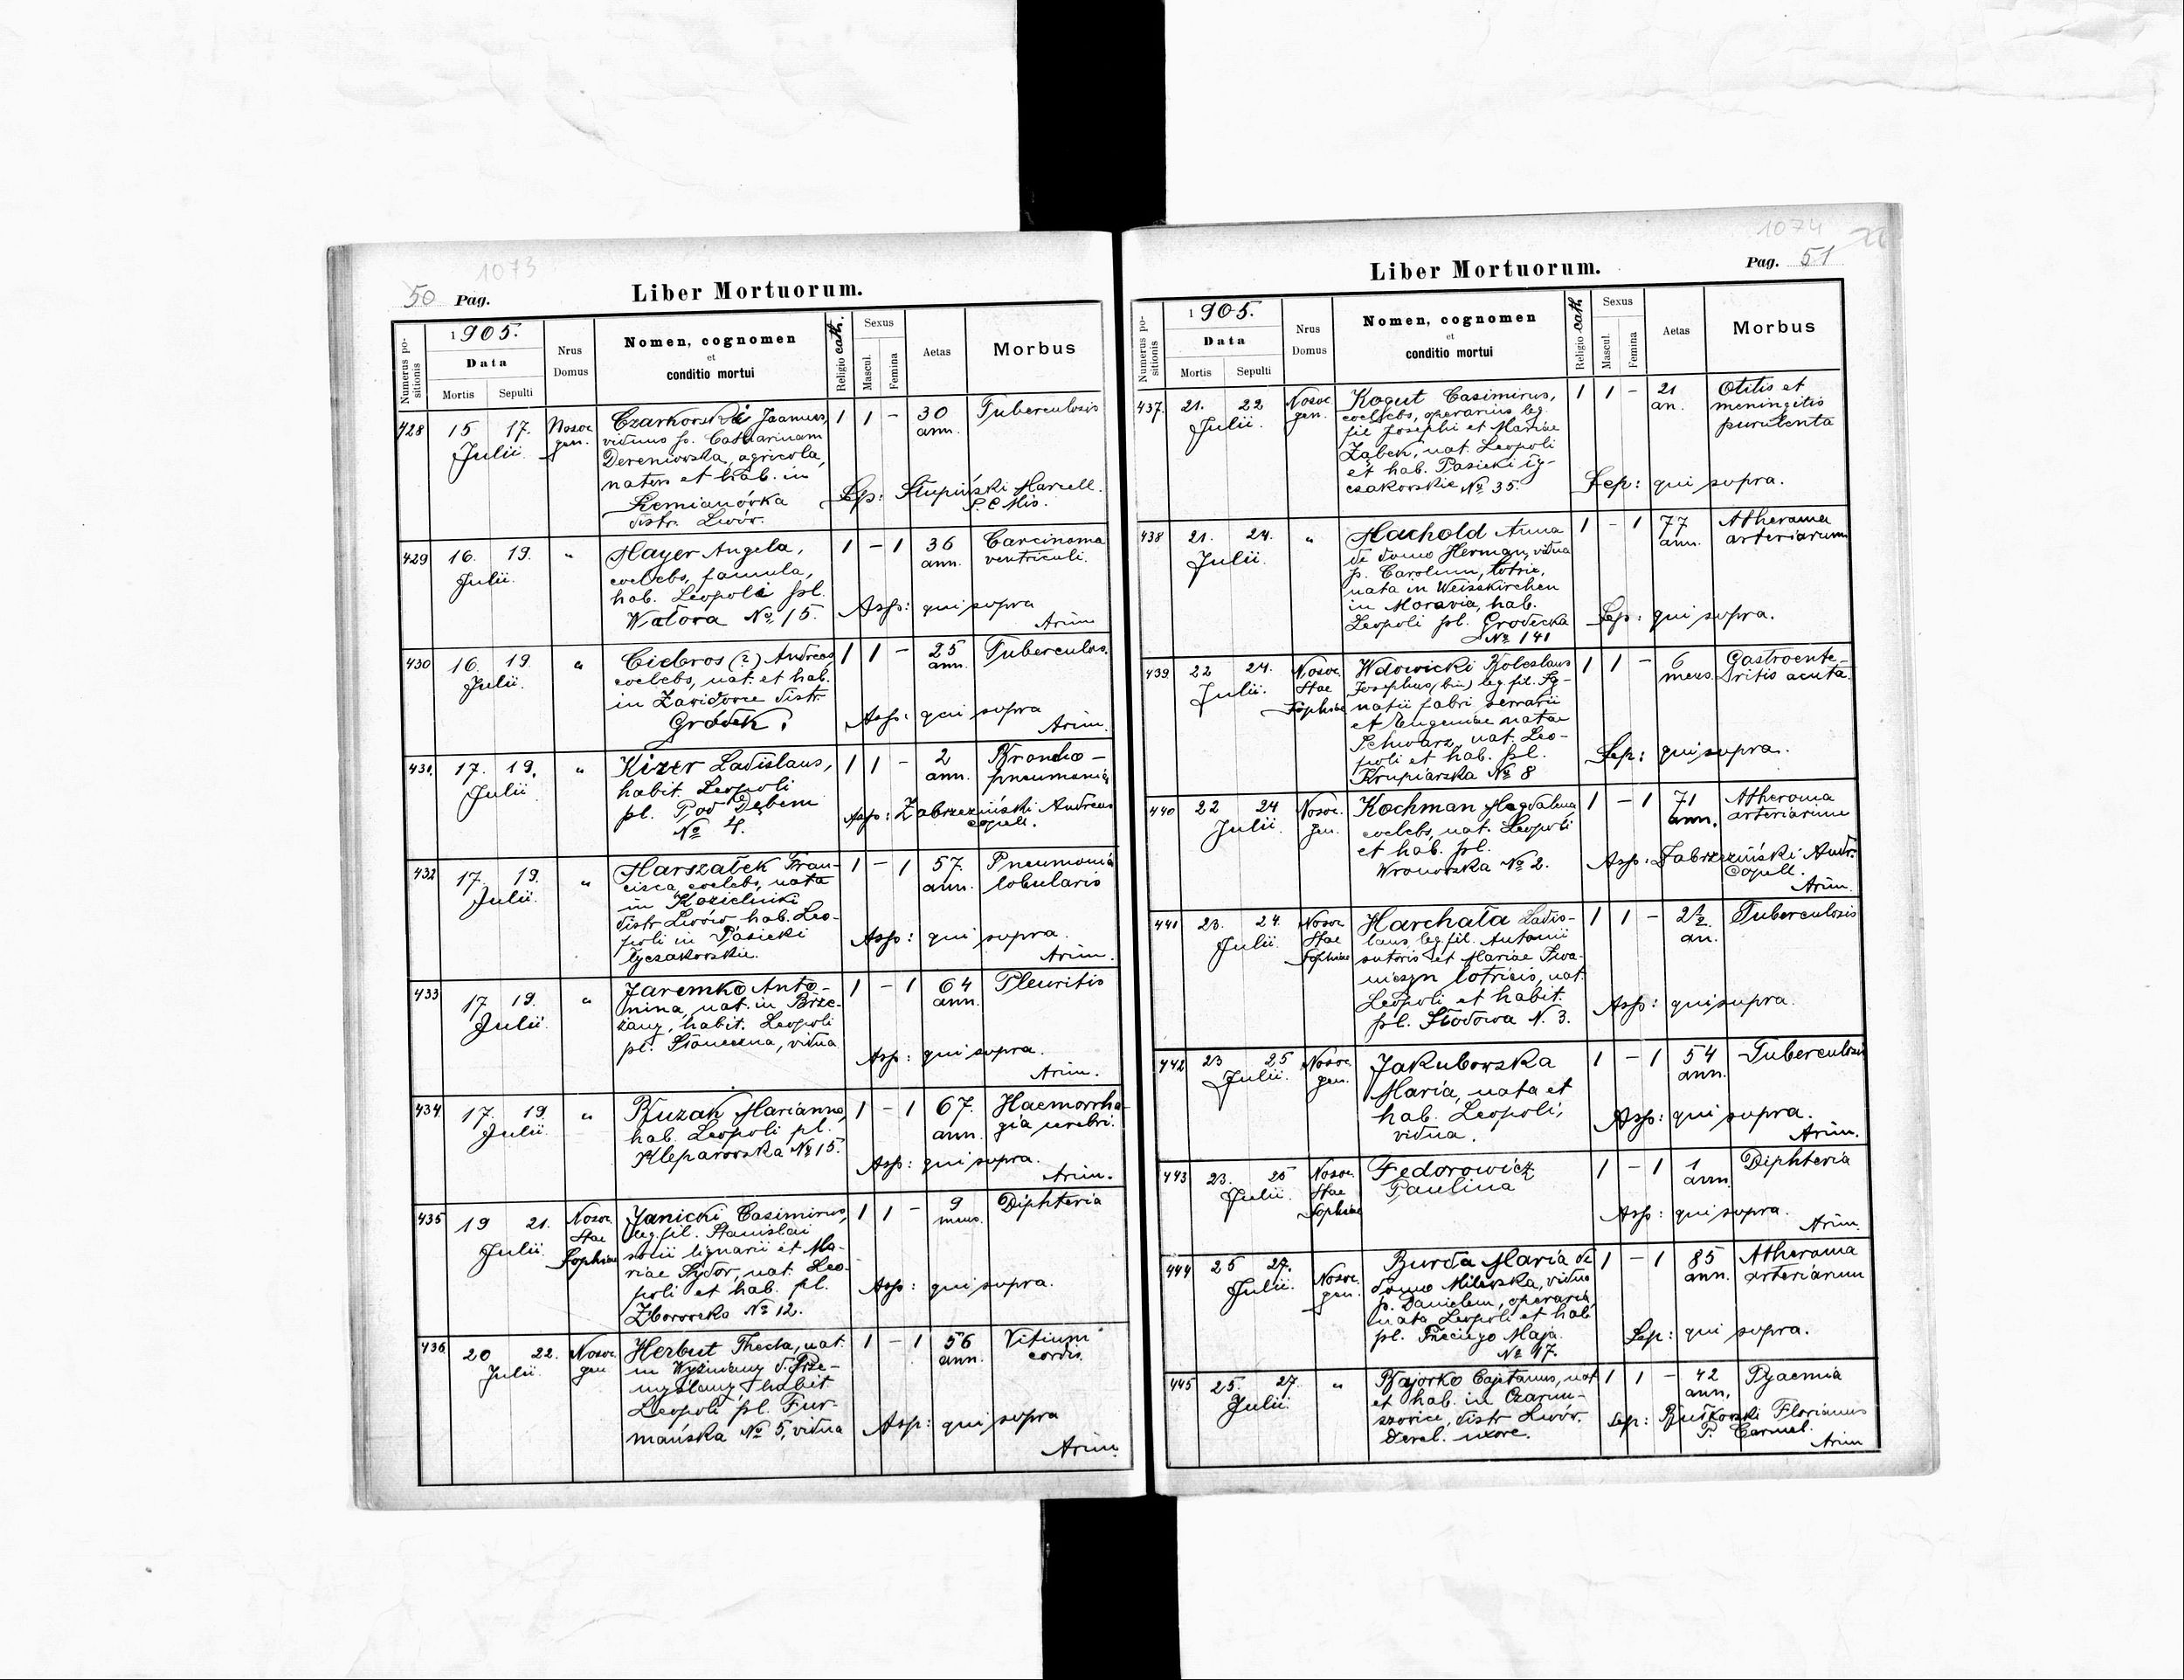 1073
50 Pag.
Liber Mortuorum.
Numerus positionis
1905.
Data
Mortis
Sepulti
Nrus Domus
Nomen, cognomen
et
conditio mortui
Religio cath.
Sexus
Mascul.
Femina
Aetas
Morbus
428 15 17. Julii Nosoc. gen.
Czarkowski Joannes,
viduus p. Catharinam
Dereniowska, agricola,
natus et hab. in
Siemianówka
distr. Lwów.
1 1 - 30 ann. Tuberculosis
Sep: Słupiński Marcell.
S. C. Mis.
429 16. 19. Julii. "
Mayer Angela,
coelebs, famula,
hab. Leopoli pl.
Wałowa No 15.
1 - 1 36 ann. Carcinoma
ventriculi.
Asp: qui supra
Arim
430 16. 19. Julii. "
Ciebros (?) Andreas
coelebs, nat. et hab.
in Zawidowce distr.
Gródek.
1 1 - 25 ann. Tuberculos.
Asp: qui supra
Arim.
431. 17. 19. Julii "
Kizer Ladislaus,
habit. Leopoli
pl. Pod Dębem
No 4.
1 1 - 2 ann. Broncho-
pneumonia
Asp: Zabrzeziński Andreas
capell.
432 17. 19. Julii. "
Marszałek Fran-
cisca, coelebs, nata
in Kozielniki
distr Lwów hab. Leo-
poli in Pasieki
Łyczakowskie.
1 - 1 57. ann. Pneumonia
lobularis
Asp: qui supra.
Arim.
433 17 19. Julii. "
Jaremko Anto-
nina, nat. in Brze-
żany, habit. Leopoli
pl. Słoneczna, vidua
1 - 1 64 ann. Pleuritis
Asp: qui supra.
Arim.
434 17. 19 Julii. "
Buzak Marianna,
hab. Leopoli pl.
Kleparowska No 15.
1 - 1 67. ann. Haemorrha-
gia cerebri.
Asp: qui supra.
Arim.
435 19 21. Julii. Nosoc. Stae Sophiae
Janicki Casimirus,
leg. fil. Stanislai
socii lignarii et Ma-
riae Sydor, nat. Leo-
poli et hab. pl.
Zborowska No 12.
1 1 - 9 mens. Diphteria
Asp: qui supra.
436 20 22. Julii. Nosoc. gen
Herbut Thecla, nat.
in Wyżniany d. Prze-
myślany, habit.
Leopoli pl. Fur-
mańska No 5, vidua
1 - 1 56 ann. Vitium
cordis.
Asp: qui supra
Arim.
1074
Liber Mortuorum.
Pag. 51
Numerus positionis
1905.
Data
Mortis
Sepulti
Nrus Domus
Nomen, cognomen
et
conditio mortui
Religio cath.
Sexus
Mascul.
Femina
Aetas
Morbus
437. 21. 22 Julii. Nosoc gen.
Kogut Casimirus,
coelebs, operarius leg.
fil Josephi et Mariae
Ząbek, nat. Leopoli
et hab. Pasieki Ły-
czakowskie No 35.
1 1 - 21 an. Otitis et
meningitis
purulenta
Sep: qui supra.
438 21. 24. Julii. "
Machold Anna
de domo Herman, vidua
p. Carolum, lotrix,
nata in Weisskirchen
in Moravia, hab.
Leopoli pl. Grodecka
No 141
1 - 1 77 ann. Atheroma
arteriarum
Sep: qui supra.
439 22 24. Julii. Nosoc. Stae Sophiae
Wdowicki Boleslaus
Josephus (bin) leg. fil. Ig-
natii fabri serrarii
et Eugeniae natae
Schwarz, nat. Leo-
poli et hab. pl.
Krupiarska No 8
1 1 - 6 mens. Gastroente-
ritis acuta.
Sep: qui supra.
440 22 24 Julii Nosoc. gen.
Kochman Magdalena
coelebs, nat. Leopoli
et hab. pl.
Wronowska No 2.
1 - 1 71 ann. Atheroma
arteriarum
Asp: Zabrzeziński Andr.
Capell.
Arim.
441 23. 24. Julii. Nosoc. Stae Sophiae
Harchała Ladis-
laus, leg. fil. Antonii
sutoris et Mariae Iwa-
niczyn lotricis, nat.
Leopoli et habit.
pl. Słodowa N. 3.
1 1 - 2½ an. Tuberculosis
Asp: qui supra.
442 23 25 Julii. Nosoc. gen.
Jakubowska
Maria, nata et
hab. Leopoli,
vidua.
1 - 1 54 ann. Tuberculosis
Asp: qui supra.
Arim.
443 23. 25 Julii. Nosoc. Stae Sophiae
Fedorowicz
Paulina
1 - 1 1 ann. Diphteria
Asp: qui supra.
Arim.
444 25 27. Julii. Nosoc. gen.
Burda Maria de
domo Milewska, vidua
p. Danielem, operaria
nata Leopoli et hab
pl. Trzeciego Maja
No 17.
1 - 1 85 ann. Atheroma
arteriarum
Sep: qui supra.
445 25 27. Julii. "
Bajorko Cajetanus, nat
et hab. in Czarnu-
szowice, distr. Lwów.
derel. uxore.
1 1 - 42 ann. Pyaemia
Sep: Rutkowski Florianus
P. Carmel.
Arim